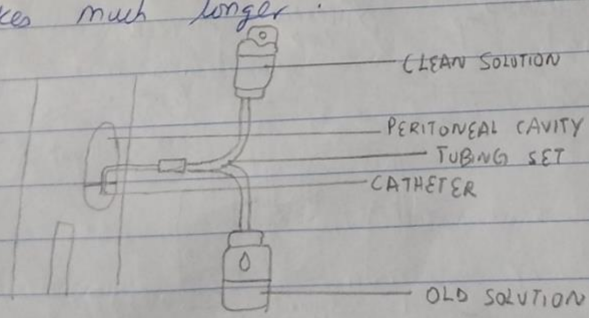 much longer.
CLEAN SOLUTION
PERITONEAL CAVITY
TUBING SET
CATHETER
OLD SOLUTION